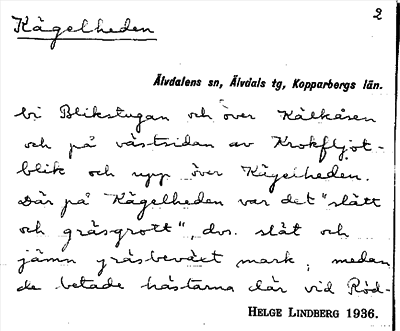 2
Kägelheden
Älvdalens sn, Älvdals tg, Kopparbergs län.
bi Blikstugan och över Kålkåsen
och på västsidan av Krokfljot-
blik och upp över Kägelheden.
Där på Kägelheden var det "slått
och gräsgrott", dvs. slät och
jämn gräsbeväxt mark, medan
de betade hästarna där vid Röd-
HELGE LINDBERG 1936.